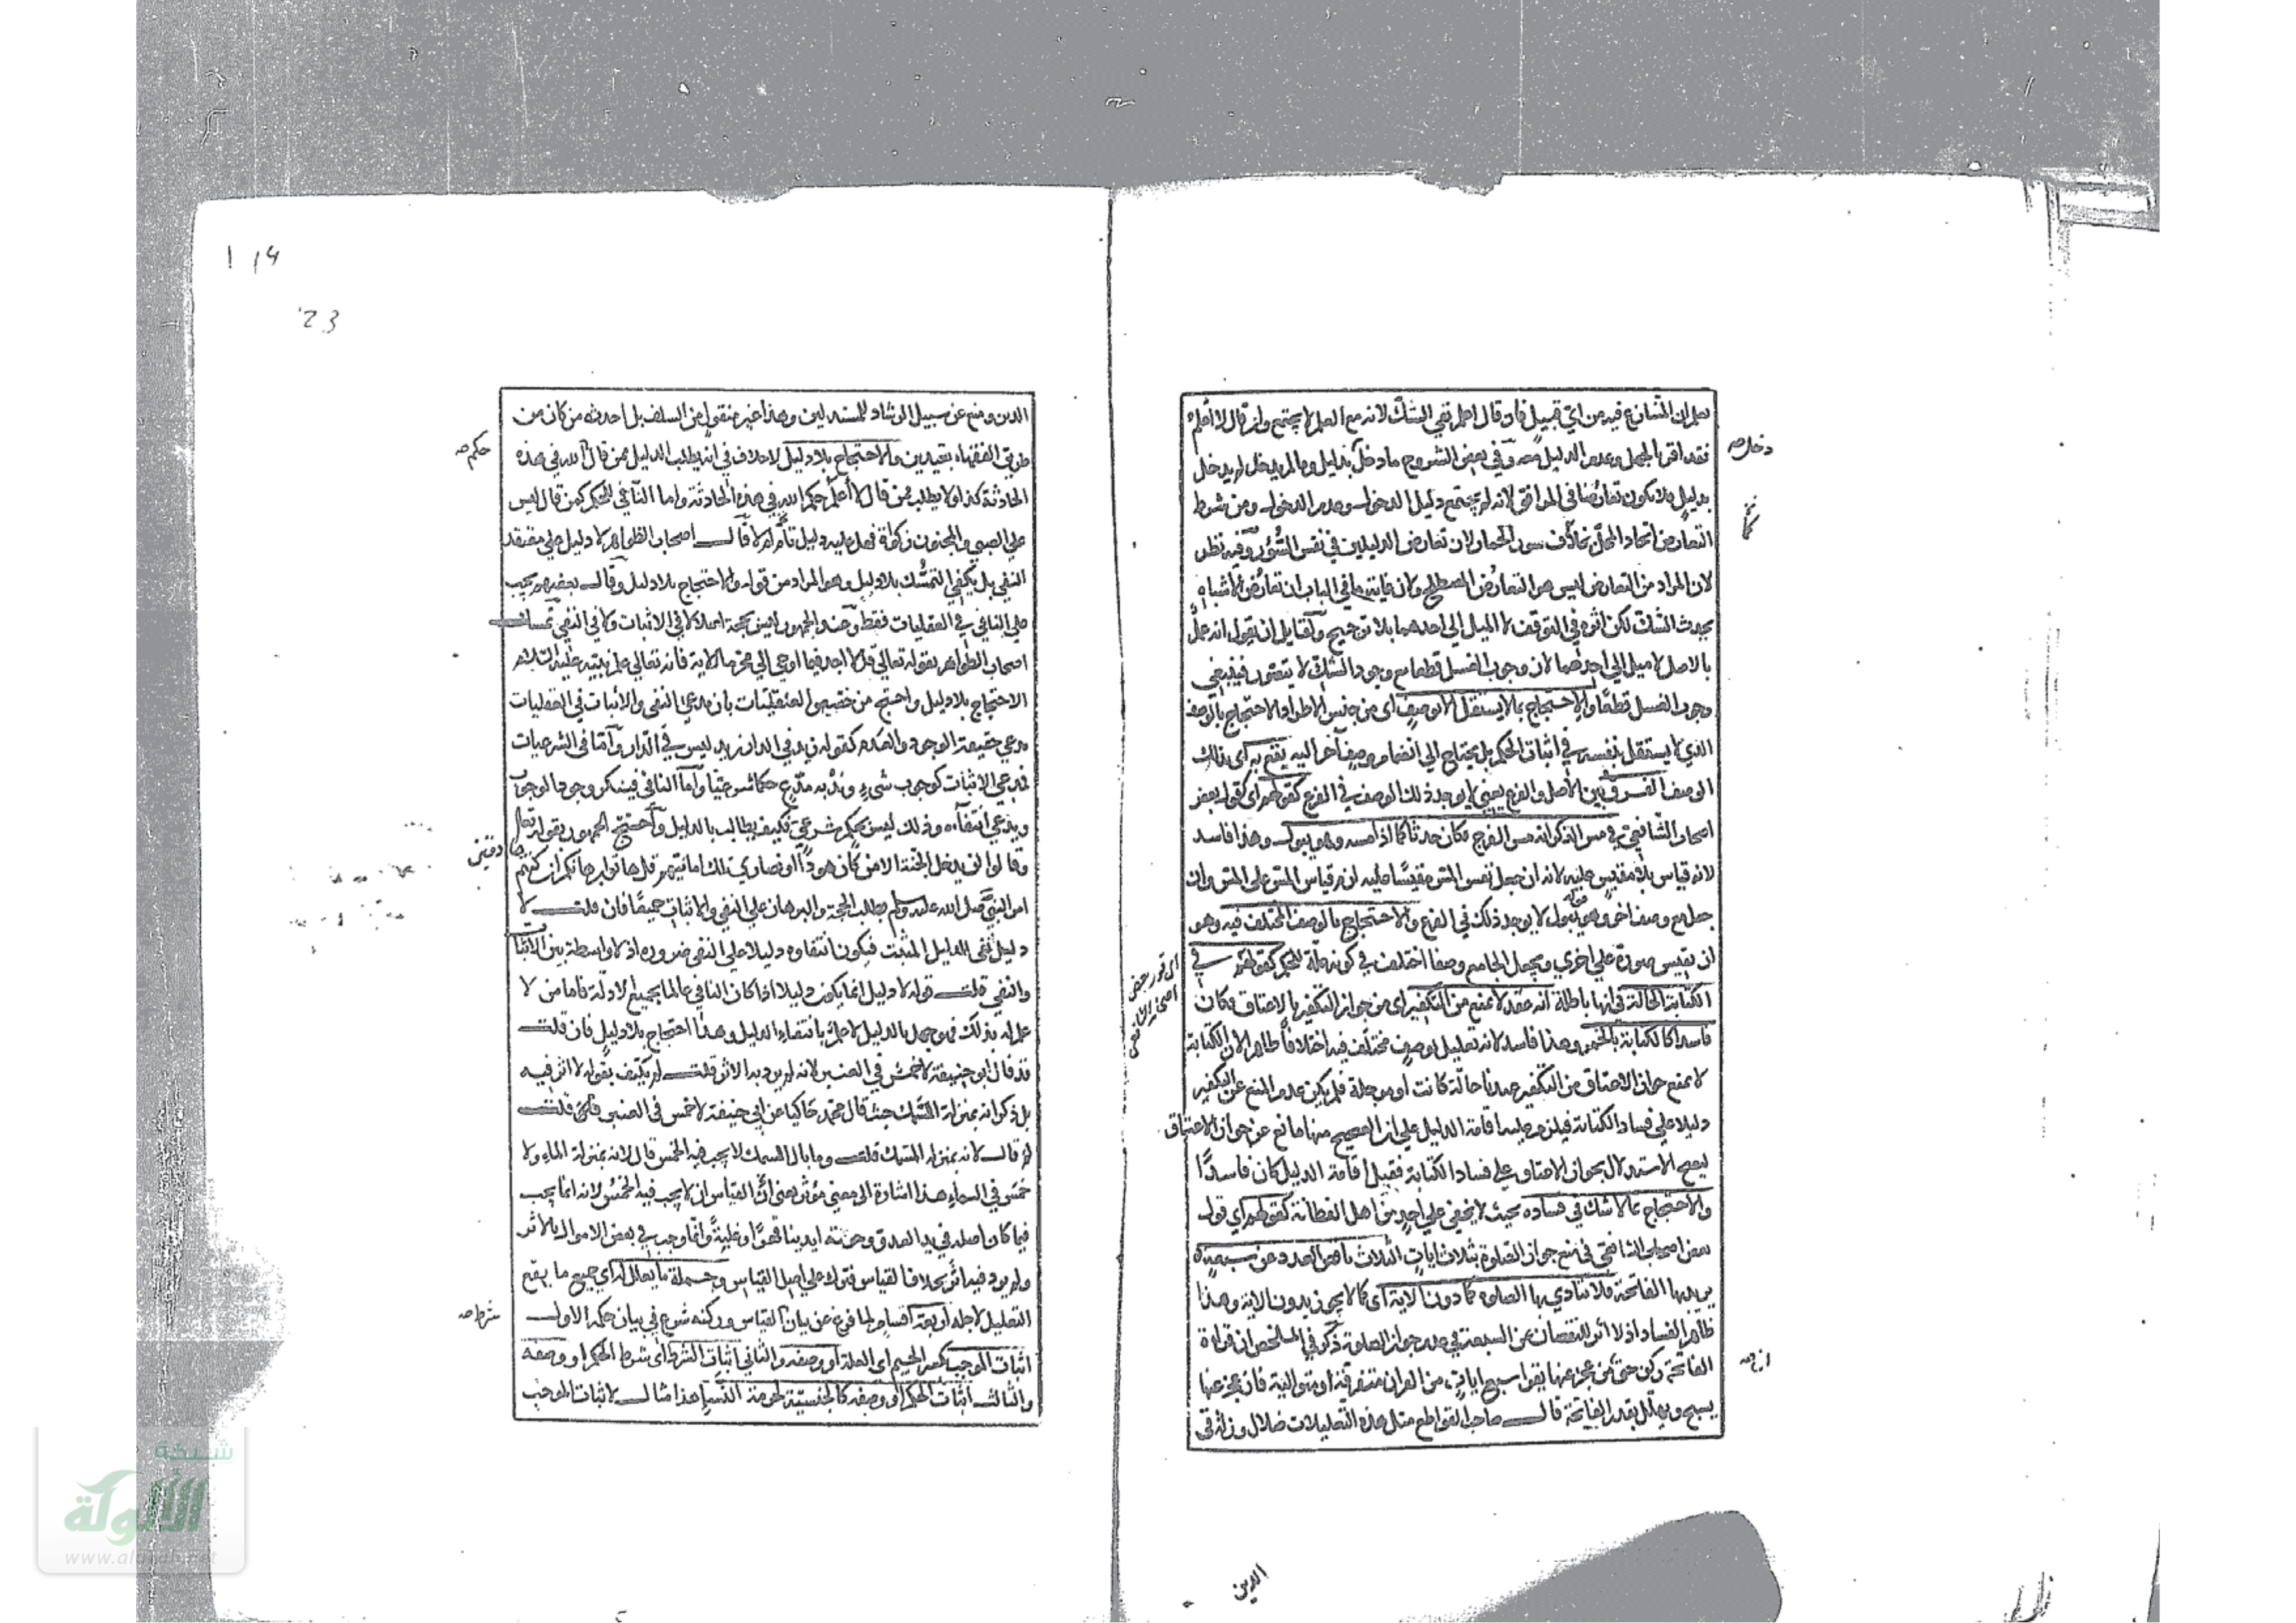 يعلم ان المتنازع فيه من اي قبيل فان قال اعلم نفي الشك لانه مع العلم لا يجتمع وان قال لا اعلم
فقد اقر بالجهل وعدم الدليل معه وفي بعض الشروح ما دخل بدليل وما لم يدخل لم يدخل
دخل صح
بدليل فلا يكون تعارضا في المرافق لانه لم يجتمع دليل الدخول وعدم الدخول ومن شرط
التعارض اتحاد المحل بخلاف سور الحمار لان تعارض الدليلين في نفس السؤر وفيه نظر
لان المراد من التعارض ليس هو التعارض المصطلح ولان غاية ما في الباب ان تعارض الاشباه
يحدث الشك لكن اثره في التوقف لا الميل الى احدهما بلا ترجيح ولقايل ان يقول انه عمل
بالاصل لا ميل الي احدهما لان وجوب الغسل قطعا مع وجود الشك لا يتصور فينبغي
وجوب الغسل قطعا والاحتجاج بما لا يستقل الا بوصف اي من جنس الاطراد الاحتجاج بالوصف
الذي لا يستقل بنفسه في اثبات الحكم بل يحتاج الي انضمام وصف آخر اليه يقع به اي بذلك
الوصف الفرق بين الاصل والفرع يعني لا يوجد ذلك الوصف في الفرع كقولهم اي كقول بعض
اصحاب الشافعي في مس الذكر انه مس الفرج فكان حدثا كما اذا مسه وهو يبول وهذا فاسد
لانه قياس بلا مقيس عليه لانه ان جعل نفس المس مقيسا عليه لزم قياس المس على المس وان
جعل مع وصف اخر وهو قوله يبول لا يوجد ذلك في الفرع والاحتجاج بالوصف المختلف فيه وهو
ان تقيس صورة علي اخري وتجعل الجامع وصفا اختلف في كونه علة للحكم كقولهم في
اي قول بعض
اصحاب الشافعي
الكتابة الحالة في انها باطلة انه عقد لا يمنع من التكفير اي من جواز التكفير بالاعتاق فكان
فاسدا كالكتابة بالخمر وهذا فاسد لانه تعليل بوصف مختلف فيه اختلافا ظاهرا لان الكتابة
لا يمنع جواز الاعتاق من التكفير عندنا حالة كانت او موجلة فلم يكن عدم المنع عن التكفير
دليلا علي فساد الكتابة فيلزم عليه اقامة الدليل علي ان الصحيح منها مانع عن جواز الاعتاق
ليصح الاستدلال بجواز الاعتاق على فساد الكتابة فقبل اقامة الدليل كان فاسدا
والاحتجاج بما لا شك في فساده بحيث لا يخفي علي احد من اهل الفطانة كقولهم اي قول
بعض اصحاب الشافعي في منع جواز الصلوة بثلاث ايات الثلاث ناقص العدد عن سبعة
يريد بها الفاتحة فلا تتادي بها الصلوة كما دون الاية اي كما لا يجوز بدون الاية وهذا
ظاهر الفساد اذ لا اثر للنقصان عن السبعة في عدم جواز الصلوة ذكر في الملخص ان قراءة
الفاتحة ركن حتى من عجز عنها يقرا سبع ايات من القران متفرقة او متوالية فان عجز عنها
يسبح ويهلل بقدر الفاتحة قال صاحب القواطع مثل هذه التعليلات ضلال وزلة في
الدين
الدين ومنع عن سبيل الرشاد للمستدلين وهذا غير منقول عن السلف بل احدثه من كان من
طريق الفقهاء بعيدين والاحتجاج بلا دليل لا خلاف في انه يطلب الدليل ممن قال لله في هذه
حكم صح
الحادثة كذا ولا يطلب ممن قال لا اعلم حكم الله في هذه الحادثة واما النافي للحكم كمن قال ليس
علي الصبي والمجنون زكوة فهل عليه دليل ام لا قال اصحاب الظواهر لا دليل علي معتقد
النفي بل يكفي التمسك بلا دليل وهو المراد من قوله والاحتجاج بلا دليل وقال بعضهم يجب
علي النافي في العقليات فقط وعند الجمهور ليس بحجة اصلا لا في الاثبات ولا في النفي تمسك
اصحاب الظواهر بقوله تعالي قل لا اجد فيما اوحي الي محرما الاية فانه تعالي علم نبيه عليه السلام
الاحتجاج بلا دليل واحتج من خصص العقليات بان مدعي النفي والاثبات في العقليات
مدعي حقيقة الوجود والعدم كقوله زيد في الدار زيد ليس في الدار واما في الشرعيات
فمدعي الاثبات كوجوب شيء وندبه مدع حكما شرعيا واما النافي فينكر وجود الوجوب
ويدعي انتفاءه وذلك ليس بحكم شرعي فكيف يطالب بالدليل واحتج الجمهور بقوله تعالى
وقالوا لن يدخل الجنة الا من كان هودا او نصاري تلك امانيهم قل هاتوا برهانكم ان كنتم
صادقين
امر النبي صلى الله عليه وسلم بطلب الحجة والبرهان علي النفي والاثبات جميعا فان قلت لا
دليل نفي الدليل المثبت فيكون انتفاوه دليلا علي النفي ضرورة اذ لا واسطة بين الاثبات
والنفي قلت قوله لا دليل انما يكون دليلا اذا كان النافي عالما بجميع الادلة فاما من لا
علم له بذلك فهو جهل بالدليل لا علم بانتفاء الدليل وهذا احتجاج بلا دليل فان قلت
قد قال ابو حنيفة لا خمس في العنبر لانه لم يرد به الاثر قلت لم يكتف بقوله لا اثر فيه
بل ذكر انه بمنزلة السمك حيث قال محمد حاكيا عن ابي حنيفة لا خمس في العنبر قلت
لم قال لانه بمنزلة السمك قلت وما بال السمك لا يجب فيه الخمس قال لانه بمنزلة الماء ولا
خمس في الماء هذا اشارة الى معنى مؤثر يعني ان القياس ان لا يجب فيه الخمس لانه انما يجب
فيما كان اصله في يد العدو وحوته ايدينا قهرا وغلبة وانما وجب في بعض الاموال بالاثر
ولم يرد فيه اثر بخلاف القياس فترك علي اصل القياس وجملة ما يعلل له اي جميع ما يقع
التعليل لاجله اربعة اقسام لما فرغ عن بيان القياس وركنه شرع في بيان حكمه الاول
شرط صح
اثبات الموجب بكسر الجيم اي العلة او وصفه والثاني اثبات الشرط اي شرط الحكم او وصفه
والثالث اثبات الحكم او وصفه كالجنسية لحرمة النسا هذا مثال لاثبات الموجب
23
شبكة
الألوكة
www.alukah.net